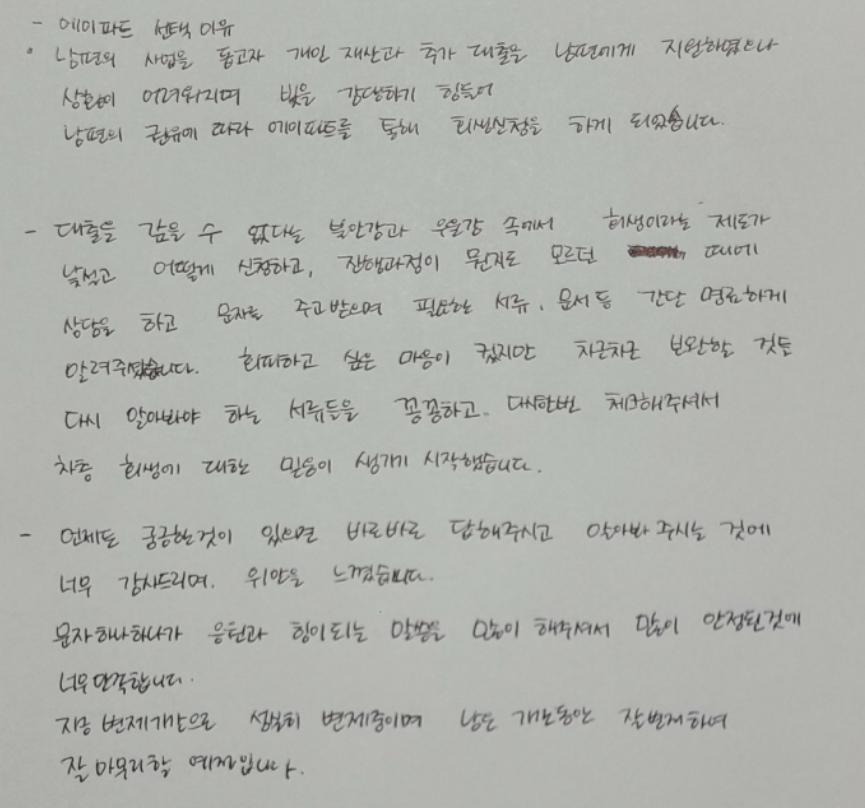 - 에이파트 선택 이유
· 남편의 사업을 돕고자 개인 재산과 추가 대출을 남편에게 지원하였으나
상황이 어려워지며 빚을 감당하기 힘들어
남편의 권유에 따라 에이파트를 통해 회생신청을 하게 되었습니다.
- 대출을 갚을 수 없다는 불안감과 우울감 속에서 회생이라는 제도가
낯설고 어떻게 신청하고, 진행과정이 뭔지도 모르던 때에
상담을 하고 문자를 주고받으며 필요한 서류, 문서 등 간단 명료하게
알려주셨습니다. 회피하고 싶은 마음이 컸지만 차근차근 보완할 것들
다시 알아봐야 하는 서류들을 꼼꼼하고 다시한번 체크해주셔서
차츰 회생에 대한 믿음이 생기기 시작했습니다.
- 언제든 궁금한것이 있으면 바로바로 답해주시고 알아봐 주시는 것에
너무 감사드리며. 위안을 느꼈습니다.
문자하나하나가 응원과 힘이되는 말씀을 많이 해주셔서 많이 안정된것에
너무 만족합니다.
지금 변제기간으로 성실히 변제중이며 남은 개월동안 잘변제하여
잘 마무리할 예정입니다.